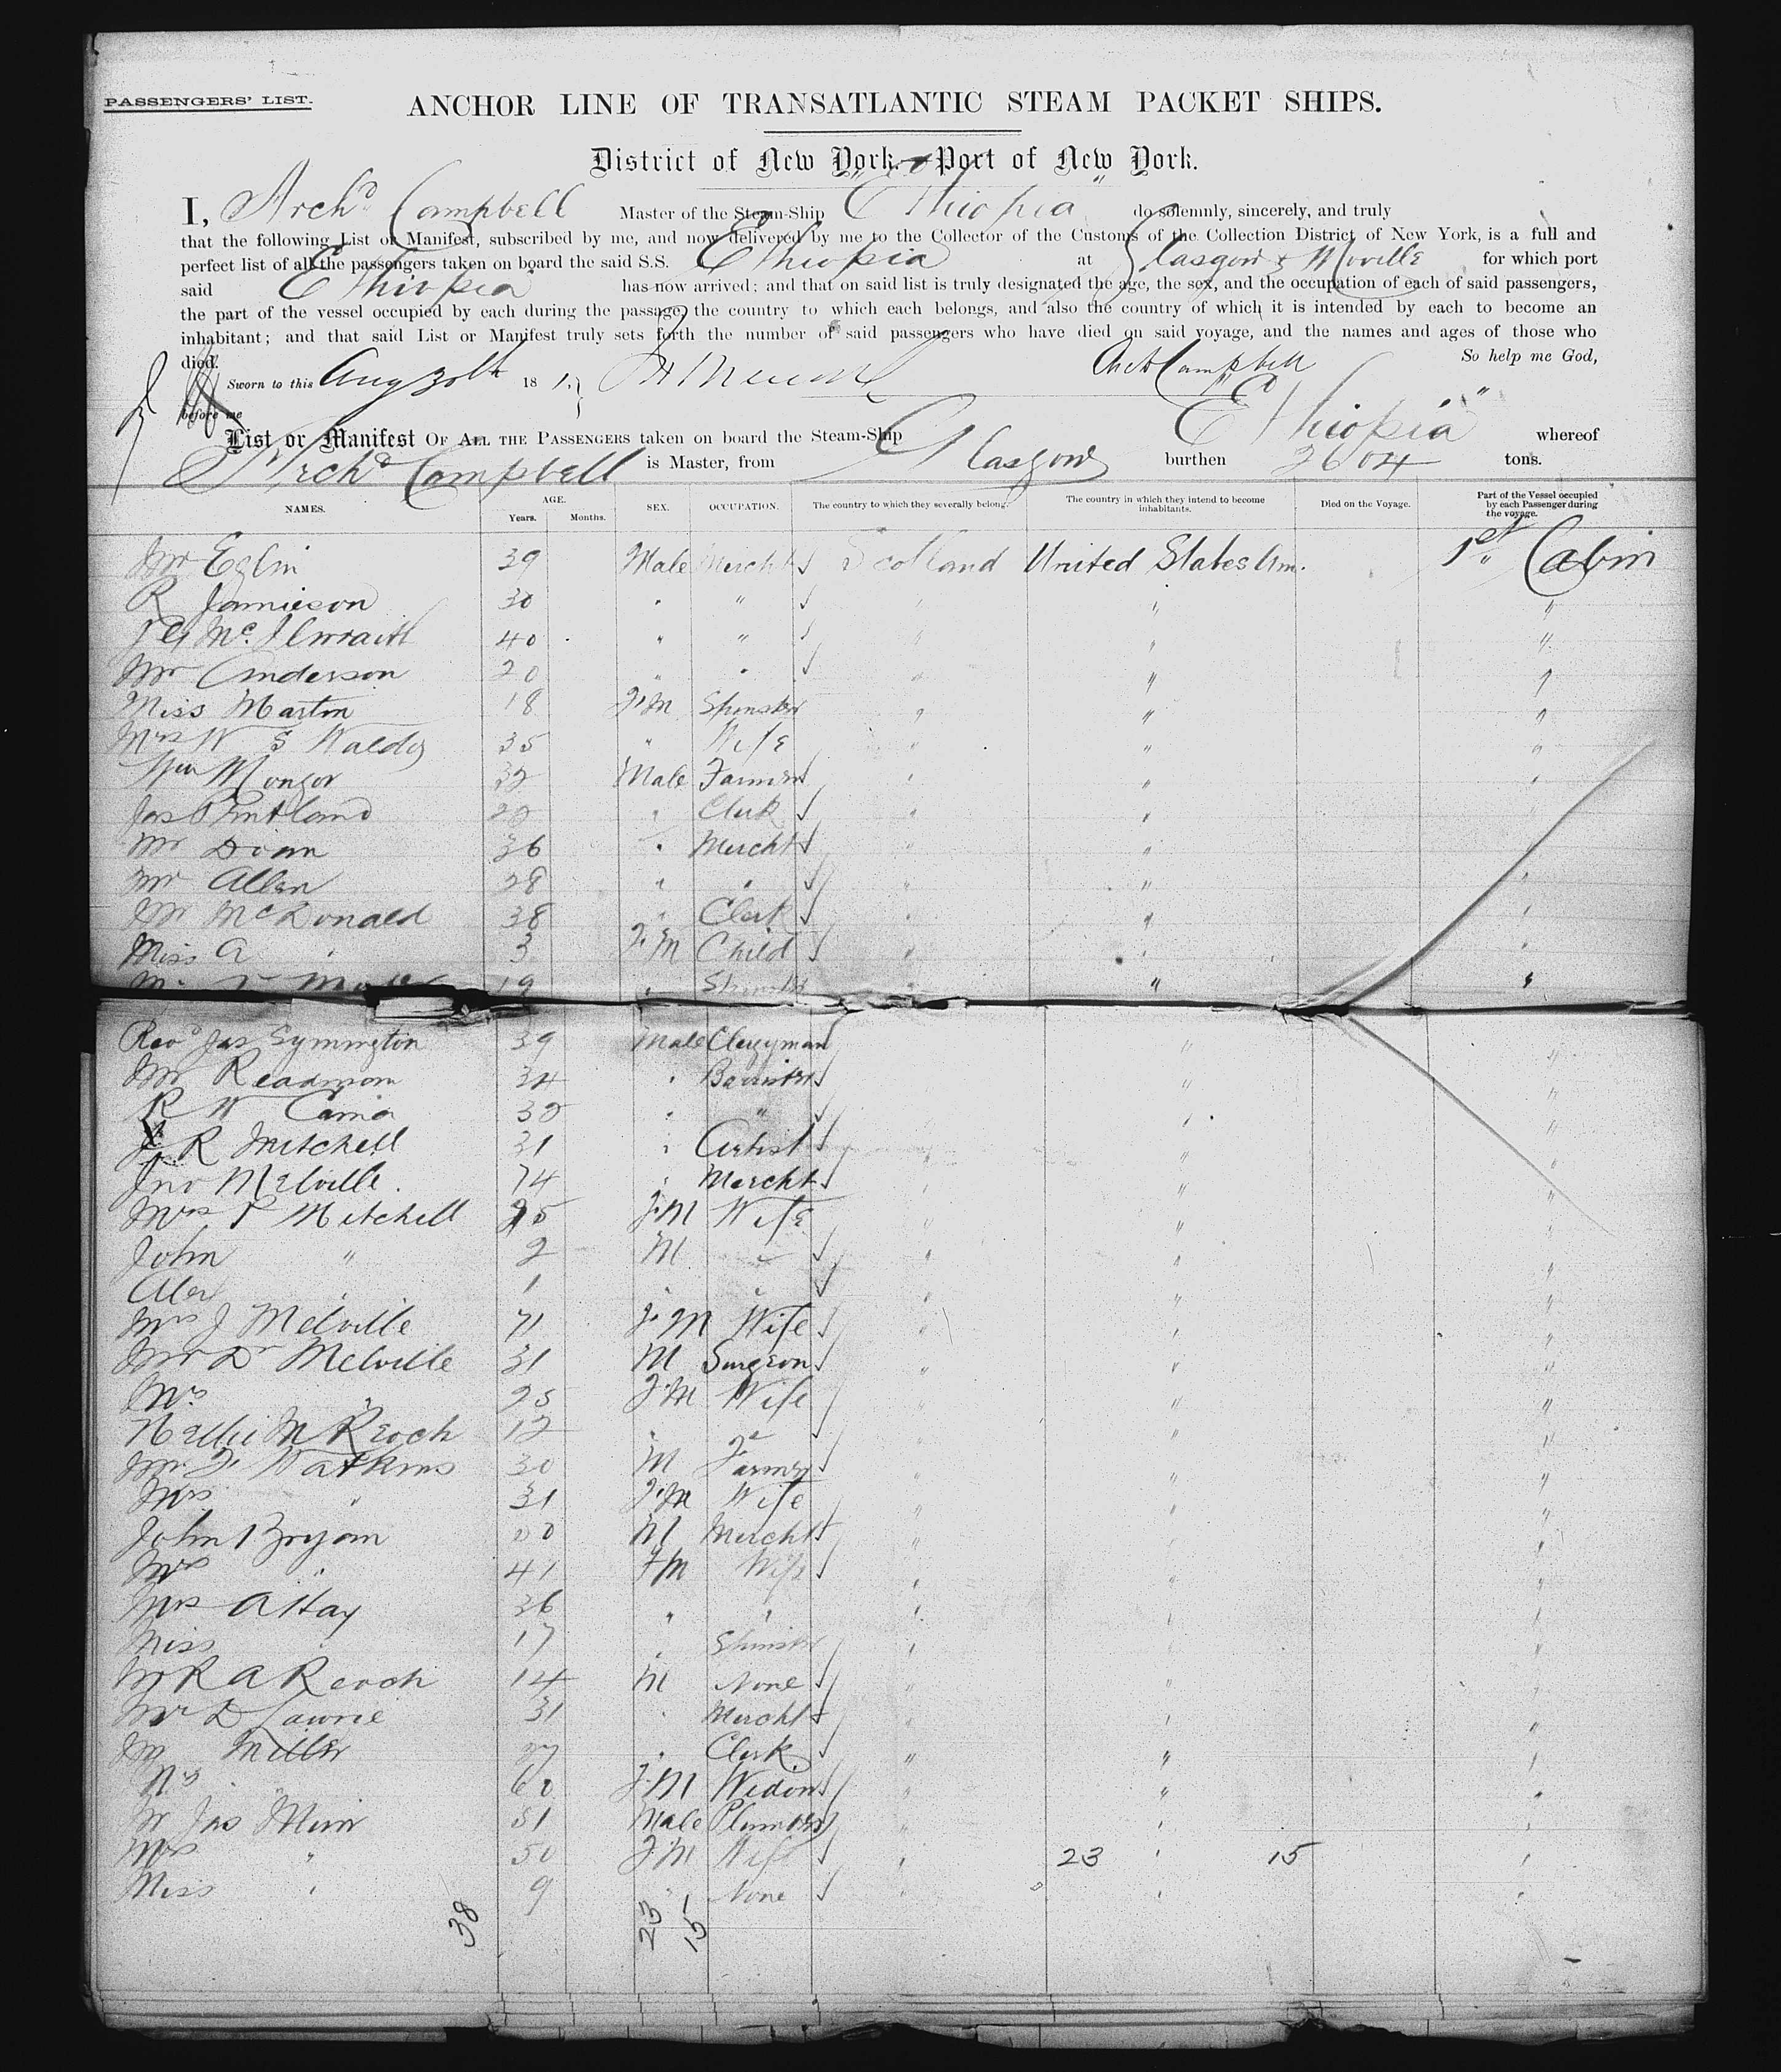 PASSENGERS' LIST.
ANCHOR LINE OF TRANSATLANTIC STEAM PACKET SHIPS.
District of New York.—Port of New York.
I, Archd Campbell Master of the Steam-Ship "Ethiopia" do solemnly, sincerely, and truly
that the following List or Manifest, subscribed by me, and now delivered by me to the Collector of the Customs of the Collection District of New York, is a full and
perfect list of all the passengers taken on board the said S.S. Ethiopia at Glasgow & Moville for which port
said Ethiopia has now arrived; and that on said list is truly designated the age, the sex, and the occupation of each of said passengers,
the part of the vessel occupied by each during the passage, the country to which each belongs, and also the country of which it is intended by each to become an
inhabitant; and that said List or Manifest truly sets forth the number of said passengers who have died on said voyage, and the names and ages of those who
died. Archd Campbell So help me God,
Sworn to this Aug 30th 18
before me
List or Manifest OF ALL THE PASSENGERS taken on board the Steam-Ship "Ethiopia" whereof
Archd Campbell is Master, from Glasgow burthen 2604 tons.
NAMES. AGE. Years. Months. SEX. OCCUPATION. The country to which they severally belong. The country in which they intend to become inhabitants. Died on the Voyage. Part of the Vessel occupied by each Passenger during the voyage.
Mr Eglin 39 Male Mercht Scotland United States Am. 1st Cabin
R Jamieson 30 " " " " "
Mc Ilwraith 40 " " " " "
Mr Anderson 20 " " " " "
Miss Martin 18 F.M Spinster " " "
Mrs W S 35 " Wife " " "
Wm Mongor 32 Male Farmer " " "
Jas Pentland " Clerk " " "
Mr 36 " Mercht " " "
Mr Allen 28 " " " " "
Mr McDonald 38 " Clerk " " "
Miss A " 3 F.M Child " " "
19 " " " "
Revd Jas Symington 39 Male Clergyman " "
Mr Readmom 34 " Barrister " "
R W " " " "
R Mitchell 31 " Artist " " "
Jno Melville. 74 " Mercht " " "
Mrs Mitchell F.M Wife " " "
John " 2 M " " " "
Alex " 1 " " " " "
Mrs J Melville 71 F.M Wife " " "
Mr Dr Melville 31 M Surgeon " " "
Mrs " 25 F.M Wife " " "
Nellie M Reoch 12 " " "
Mr F Watkins 30 M Farmer " " "
Mrs " 31 F.M Wife " " "
John Bryan M Mercht " " "
Mrs " 41 FM Wife " " "
Mrs A Hay 36 " " " " "
Miss " 17 " Spinster " " "
Mr R A Reoch 14 M None " " "
Mr D Lawrie 31 " Mercht " " "
Mr Miller 27 " Clerk " " "
Mrs " 60 F.M Widow " " "
Mr Jas Muir 51 Male Plumber " " "
Mrs " 50 F.M Wife " 23 " 15 "
Miss " 9 " None " " "
38 23 15